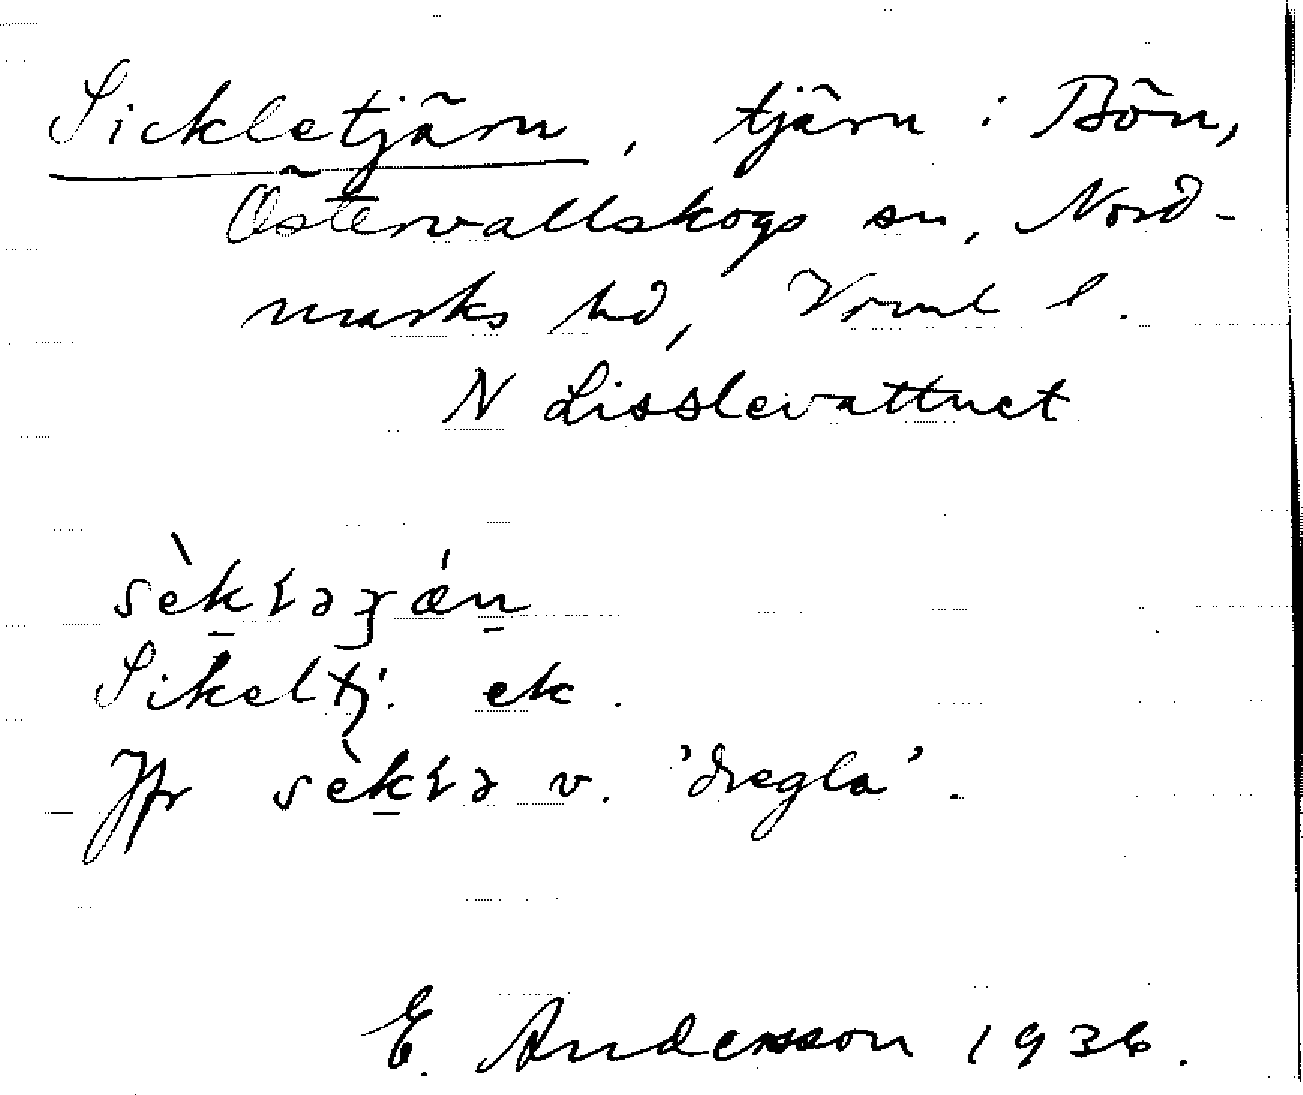 Sickletjärn, tjärn i Bön,
Östervallskogs sn, Nord-
marks hd, Vrml l.
N Lisslevattnet
Sikeltj. ek.
Jfr v. 'dregla'.
E. Andersson 1936.